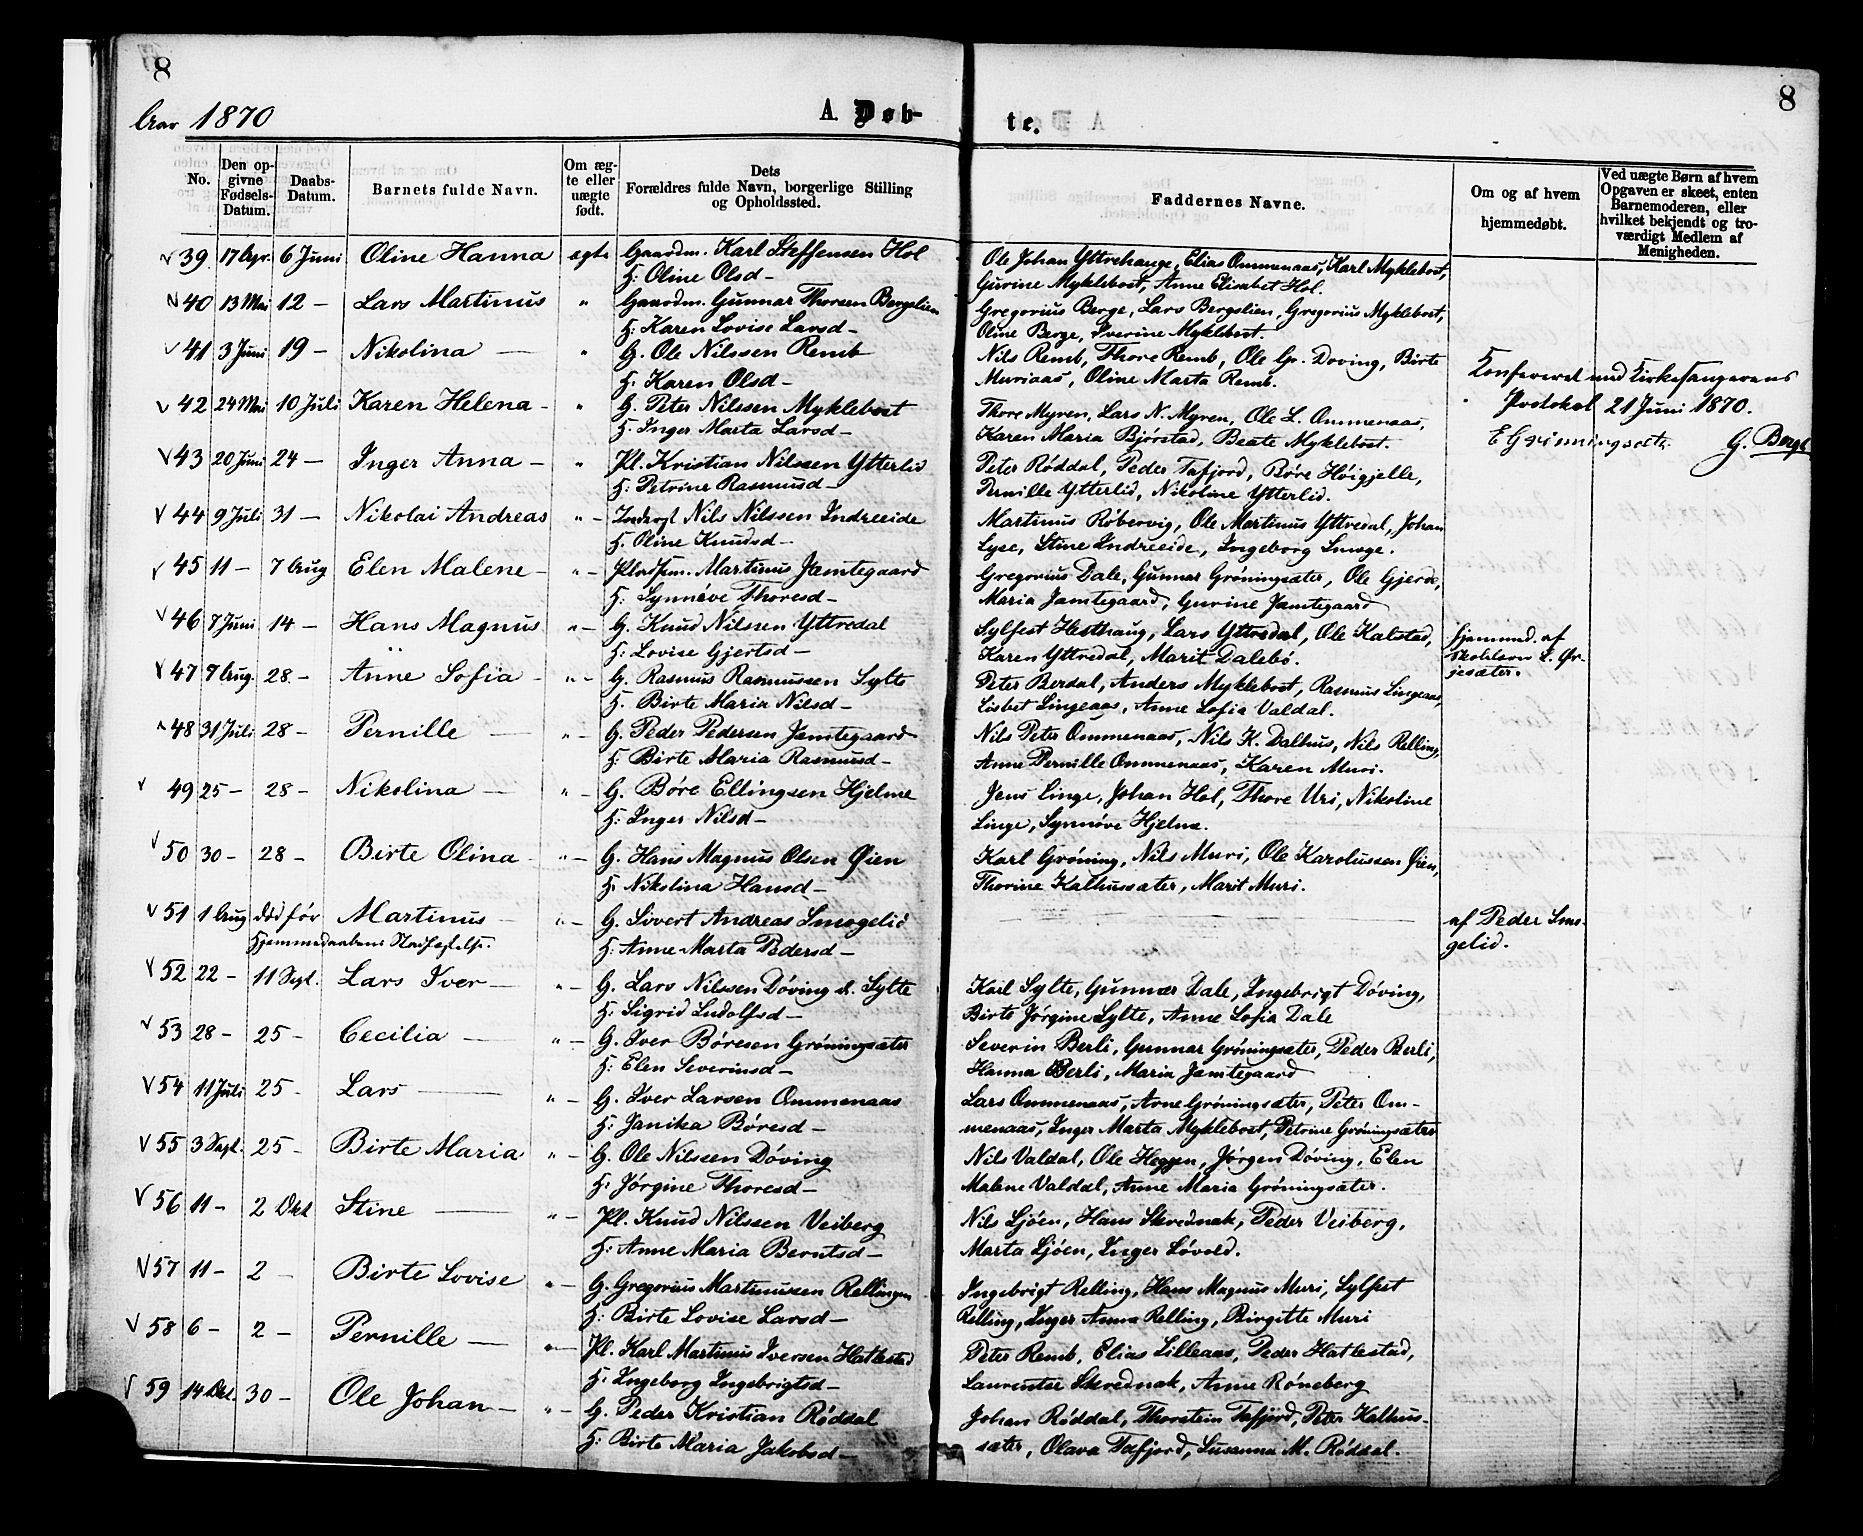 8
8
Aar 1870
A. Døb-
te.
No.
Den op-
givne
Fødsels-
Datum.
Daabs-
Datum.
Barnets fulde Navn.
Om æg-
te eller
uægte
født.
Dets
Forældres fulde Navn, borgerlige Stilling
og Opholdssted.
Faddernes Navne.
Om og af hvem
hjemmedøbt.
Ved uægte Børn af hvem
Opgaven er skeet, enten
Barnemoderen, eller
hvilket bekjendt og tro-
værdigt Medlem af
Menigheden.
39 17 Apr. 6 Juni Oline Hanna ægte Gaardm. Karl Steffensen Hol
H: Oline Olsd –
Ole Johan Yttrehauge, Elias Ommenaas, Karl Myklebost,
Gurine Myklebost, Anne Elisabet Hol.
40 13 Mai 12 – Lars Martinus " Gaardm. Gunnar Thoresen Bergslien
H: Karen Lovise Larsd –
Gregorius Berge, Lars Bergslien, Gregorius Myklebost,
Oline Berge, Iverine Myklebost.
41 3 Juni 19 – Nikolina — " G. Ole Nilssen Remb
H: Karen Olsd –
Nils Remb, Thore Remb, Ole Gr. Døving, Birte
Muriaas, Oline Marta Remb.
42 24 Mai 10 Juli Karen Helena – " G. Peter Nilssen Myklebost
H. Inger Marta Larsd –
Thore Myren, Lars N. Myren, Ole L. Ommenaas,
Karen Maria Bjørstad, Beate Myklebost.
Konfereret med Kirkesangerens
Protokol 21 Juni 1870.
E Grønningsæter. G. Berge
43 20 Juni 24 – Inger Anna – " Pl. Kristian Nilssen Ytterlid
H: Petrine Rasmusd –
Peter Røddal, Peder Tafjord, Børe Høigjelle,
Pernille Ytterlid, Nikoline Ytterlid.
44 9 Juli 31 – Nikolai Andreas " – Inderst Nils Nilssen Indreeide
H. Oline Knudsd –
Martinus Robervig, Ole Martinus Yttredal, Johan
Lyse, Stine Indreeide, Ingeborg Smoge.
45 11 – 7 Aug Elen Malene – " – Pladsm. Martinus Jamtegaard
H: Synnöve Thoresd –
Gregorius Dale, Gunnar Gröningsæter, Ole Gjerde,
Maria Jamtegaard, Gurine Jamtegaard
46 7 Juni 14 – Hans Magnus " – G. Knud Nilssen Yttredal
H: Lovise Gjertsd –
Sylfest Hesthaug, Lars Yttredal, Ole Kalstad,
Karen Yttredal, Marit Dalebö.
hjemmed. af
Skolelærer L. Ør-
jesæter.
47 7 Aug. 28 – Anne Sofia – " – G. Rasmus Rasmussen Sylte
H. Birte Maria Nilsd –
Peter Berdal, Anders Myklebost, Rasmus Lingeaas,
Lisbet Lingeaas, Anne Sofia Valdal.
48 31 Juli 28 – Pernille — " – G. Peder Pedersen Jamtegaard
H: Birte Maria Rasmusd –
Nils Peter Ommenaas, Nils K. Dalhus, Nils Relling,
Anne Pernille Ommenaas, Karen Muri.
49 25 – 28 – Nikolina — " – G. Børe Ellingsen Hjelme
H: Inger Nilsd –
Jens Linge, Johan Hol, Thore Uri, Nikoline
Linge, Synnöve Hjelme.
50 30 – 28 – Birte Olina – " – G. Hans Magnus Olsen Øien
H: Nikolina Hansd –
Karl Gröning, Nils Muri, Ole Karolussen Øien,
Thorine Kalhussæter, Marit Muri.
51 1 Aug død før Martinus — " – G. Sivert Andreas Smogelid
Hjemmedaabens Stadfæstelse.
H: Anne Marta Pedersd –
af Peder Smo-
gelid.
52 22 – 11 Sept. Lars Iver – " – G. Lars Nilssen Döving d. Sylte
H: Sigrid Ludolfsd –
Karl Sylte, Gunnar Dale, Ingebrigt Döving,
Birte Jörgine Sylte, Anne Sofia Dale
53 28 – 25 – Cecilia — " – G. Iver Böresen Gröningsæter
H: Elen Severinsd –
Severin Berli, Gunnar Gröningsæter, Peder Berli,
Hanna Berli, Maria Jamtegaard
54 11 Juli 25 – Lars — " – G. Iver Larsen Ommenaas
H: Janika Böresd –
Lars Ommenaas, Arne Gröningsæter, Peter Om-
menaas, Inger Marta Myklebost, Petrine Gröningsæter
55 3 Sept. 25 – Birte Maria " – G. Ole Nilssen Döving
H: Jörgine Thoresd –
Nils Valdal, Ole Heggen, Jörgen Döving, Elen
Malene Valdal, Anne Maria Gröningsæter.
56 11 – 2 Okt Stine — " – Pl. Knud Nilssen Veiberg
H: Anne Maria Berntsd –
Nils Ljöen, Hans Skrednak, Peder Veiberg,
Marta Ljöen, Inger Lövold.
57 11 – 2 – Birte Lovise " – G. Gregorius Martinussen Rellingen
H: Birte Lovise Larsd –
Ingebrigt Relling, Hans Magnus Muri, Sylfest
Relling, Inger Anna Relling, Birgitte Muri
58 6 – 2 – Pernille — " – Pl. Karl Martinus Iversen Hatlestad
H: Ingeborg Ingebrigtsd –
Peter Remb, Elias Lilleaas, Peder Hatlestad,
Laurentse Skrednak, Anne Röneberg
59 14 Okt. 30 – Ole Johan – " – G. Peder Kristian Röddal
H: Birte Maria Jakobsd –
Johan Röddal, Thorstein Tafjord, Peter Kalhus-
sæter, Olava Tafjord, Susanna M. Röddal.